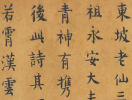 東坡老仙三
祖永安大夫
青神有携
後此詩其
若霄漢雲